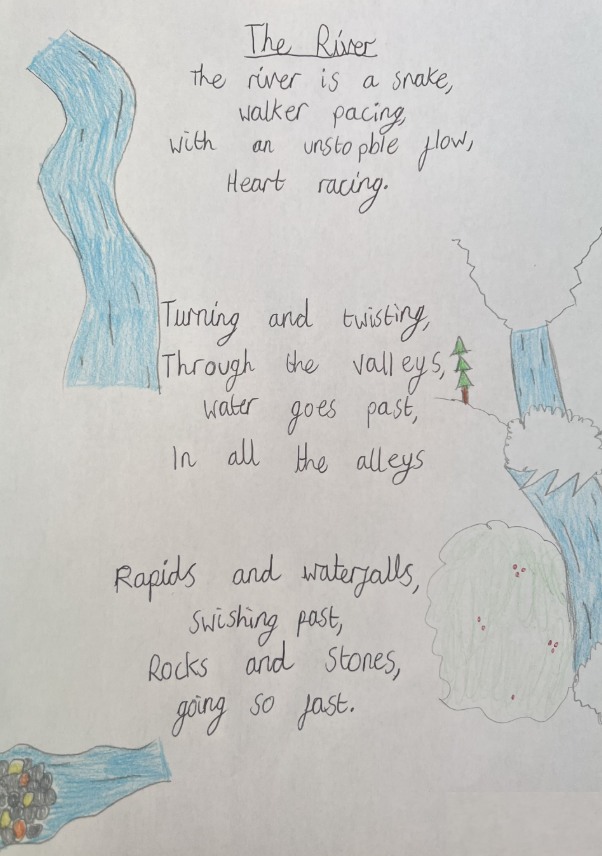 The River
The river is a snake,
walker pacing,
with an unstopble flow,
Heart racing.
Turning and twisting,
Through the valleys,
water goes past,
In all the alleys
Rapids and waterfalls,
swishing past,
Rocks and stones,
going so fast.